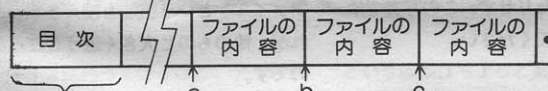 目次
ファイルの
内容
ファイルの
内容
ファイルの
内容